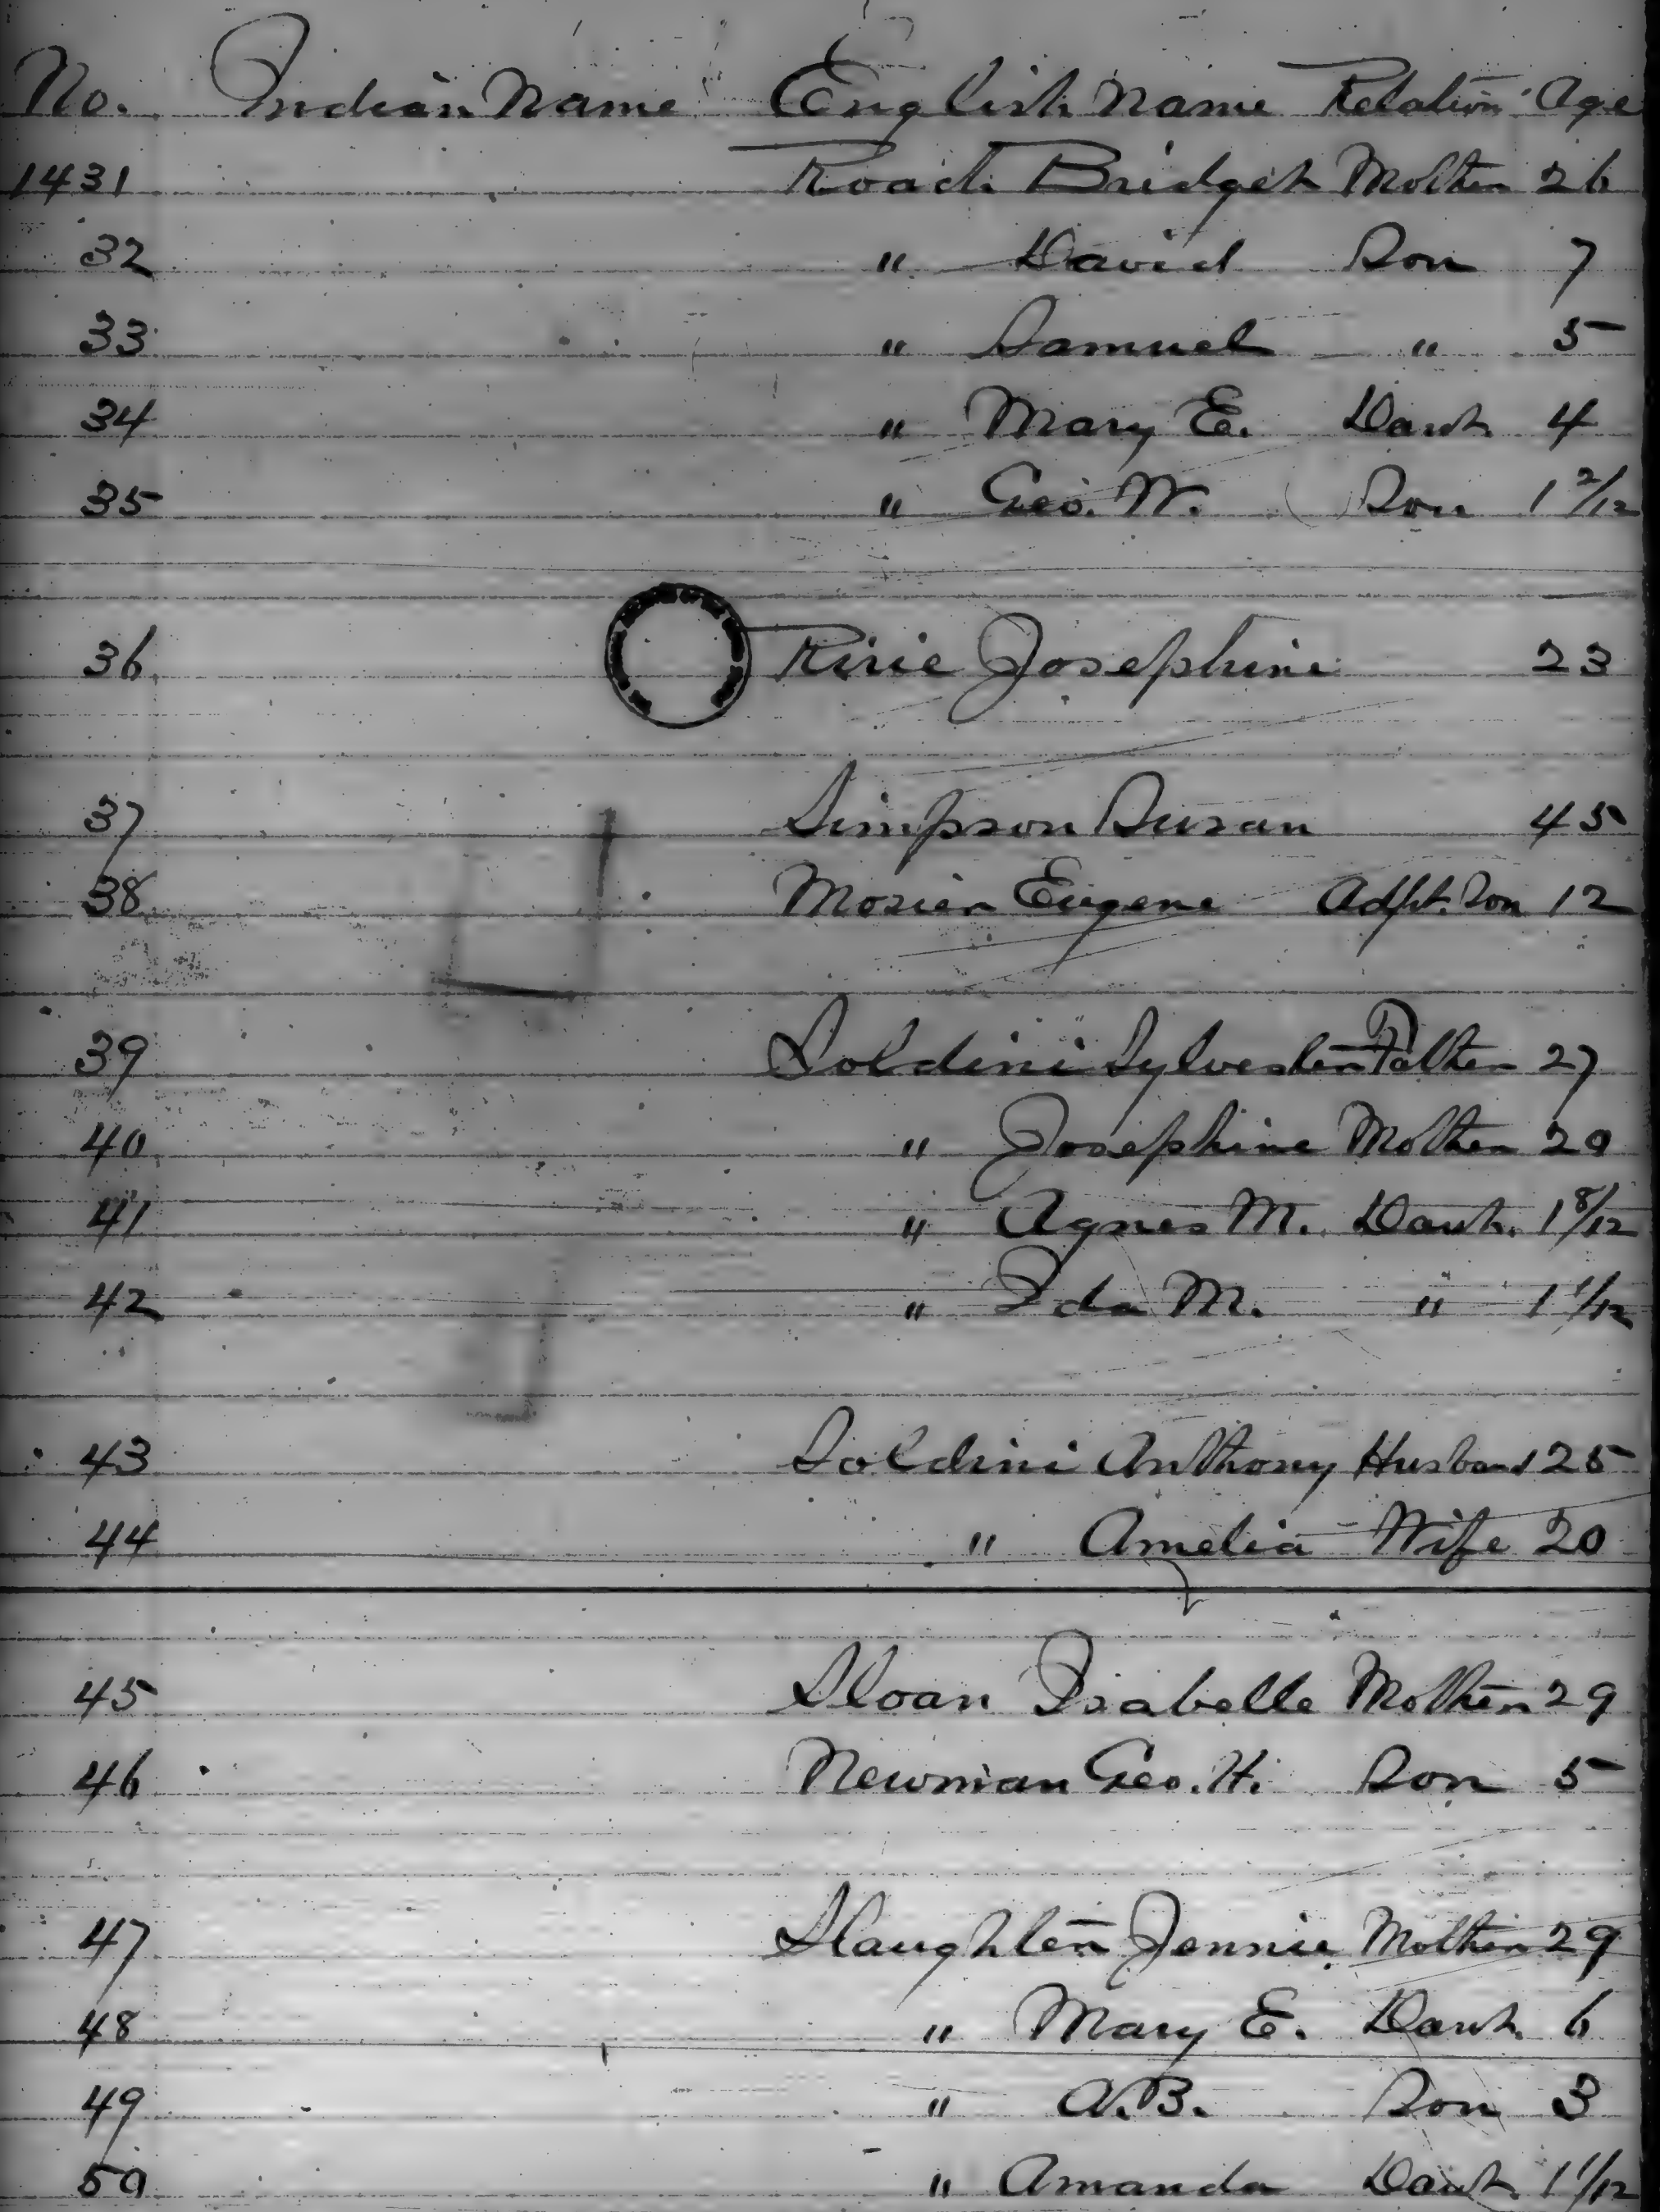 No. Indian Name English Name Relation Age
1431 Roach Bridget Mother 26
32 " David Son 7
33 " Samuel " 5
34 " Mary E. Daut. 4
35 " Geo. W. Son 1 2/12
36 Ririe Josephine 23
37 Simpson Susan 45
38 Mosier Eugene Adpt. Son 12
39 Soldini Sylvester Father 27
40 " Josephine Mother 20
41 " Agnes M. Daut. 1 8/12
42 " Ida M. " 1 1/12
43 Soldini Anthony Husband 25
44 " Amelia Wife 20
45 Sloan Isabelle Mother 29
46 Newman Geo. H. Son 5
47 Slaughter Jennie Mother 29
48 " Mary E. Daut. 6
49 " A.B. Son 3
50 " Amanda Daut. 1 1/12